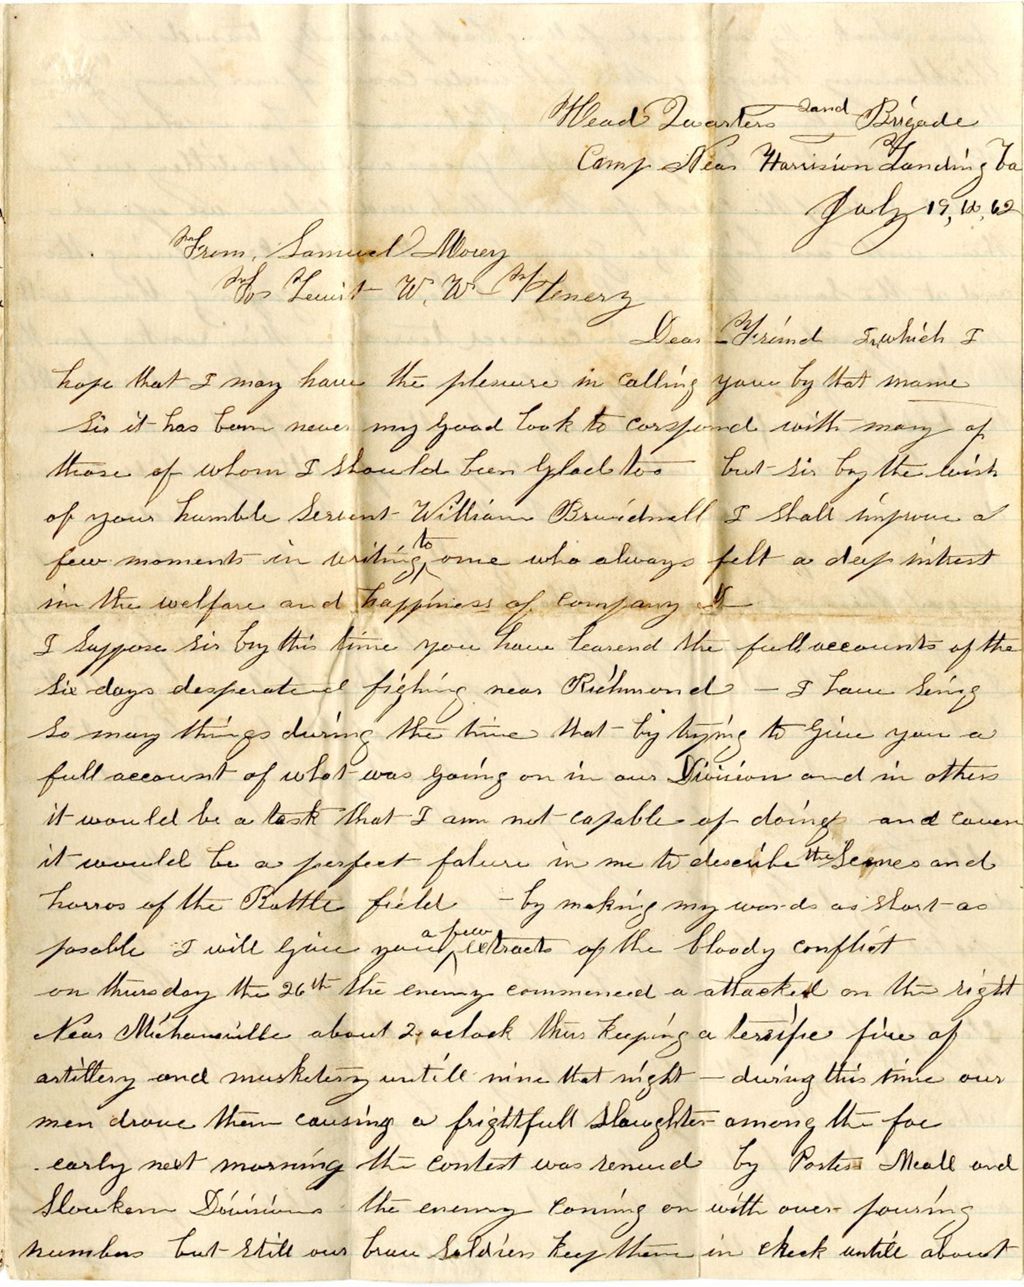 Head Quarters 2and Brigade
Camp Near Harrision Landing Va
July 19, 1862
From, Samuel Morey
To Leuit W. W. Henery
Dear Friend In which I
hope that I may have the plesure in calling your by that name
Sir it has been never my good look to corspond with many of
those of whom I should been glad too but Sir by the wish
of your humble Servent William Bruidwell I shall improve a
few moments in writing to one who always felt a deep intrest
in the welfare and happiness of Company
I Suppose Sir by this time you have learend the full accounts of the
Six days desperated fighing near Richmond - I have Sing
So many things during the time that by trying to give you a
full account of what was going on in our Division and in others
it would be a task that I am not capable of doing and even
it would be a perfect falure in me to describe the Scenes and
horros of the Battle field - by making my words as short as
posable I will give you a few extracts of the bloody conflict
on thursday the 26th the enemy commenced a attacked on the right
Near Michansville about 2 oclock thus keeping a terrific fire of
artillery and musketery untill nine that night - during this time our
men drove them causing a frightfull Slaughter among the foe
early next morning the contest was renued by Porter Meall and
Slowkem Divisions the enemy coming on with over pouring
numbers but still our brave Soldiers keep them in check untill about